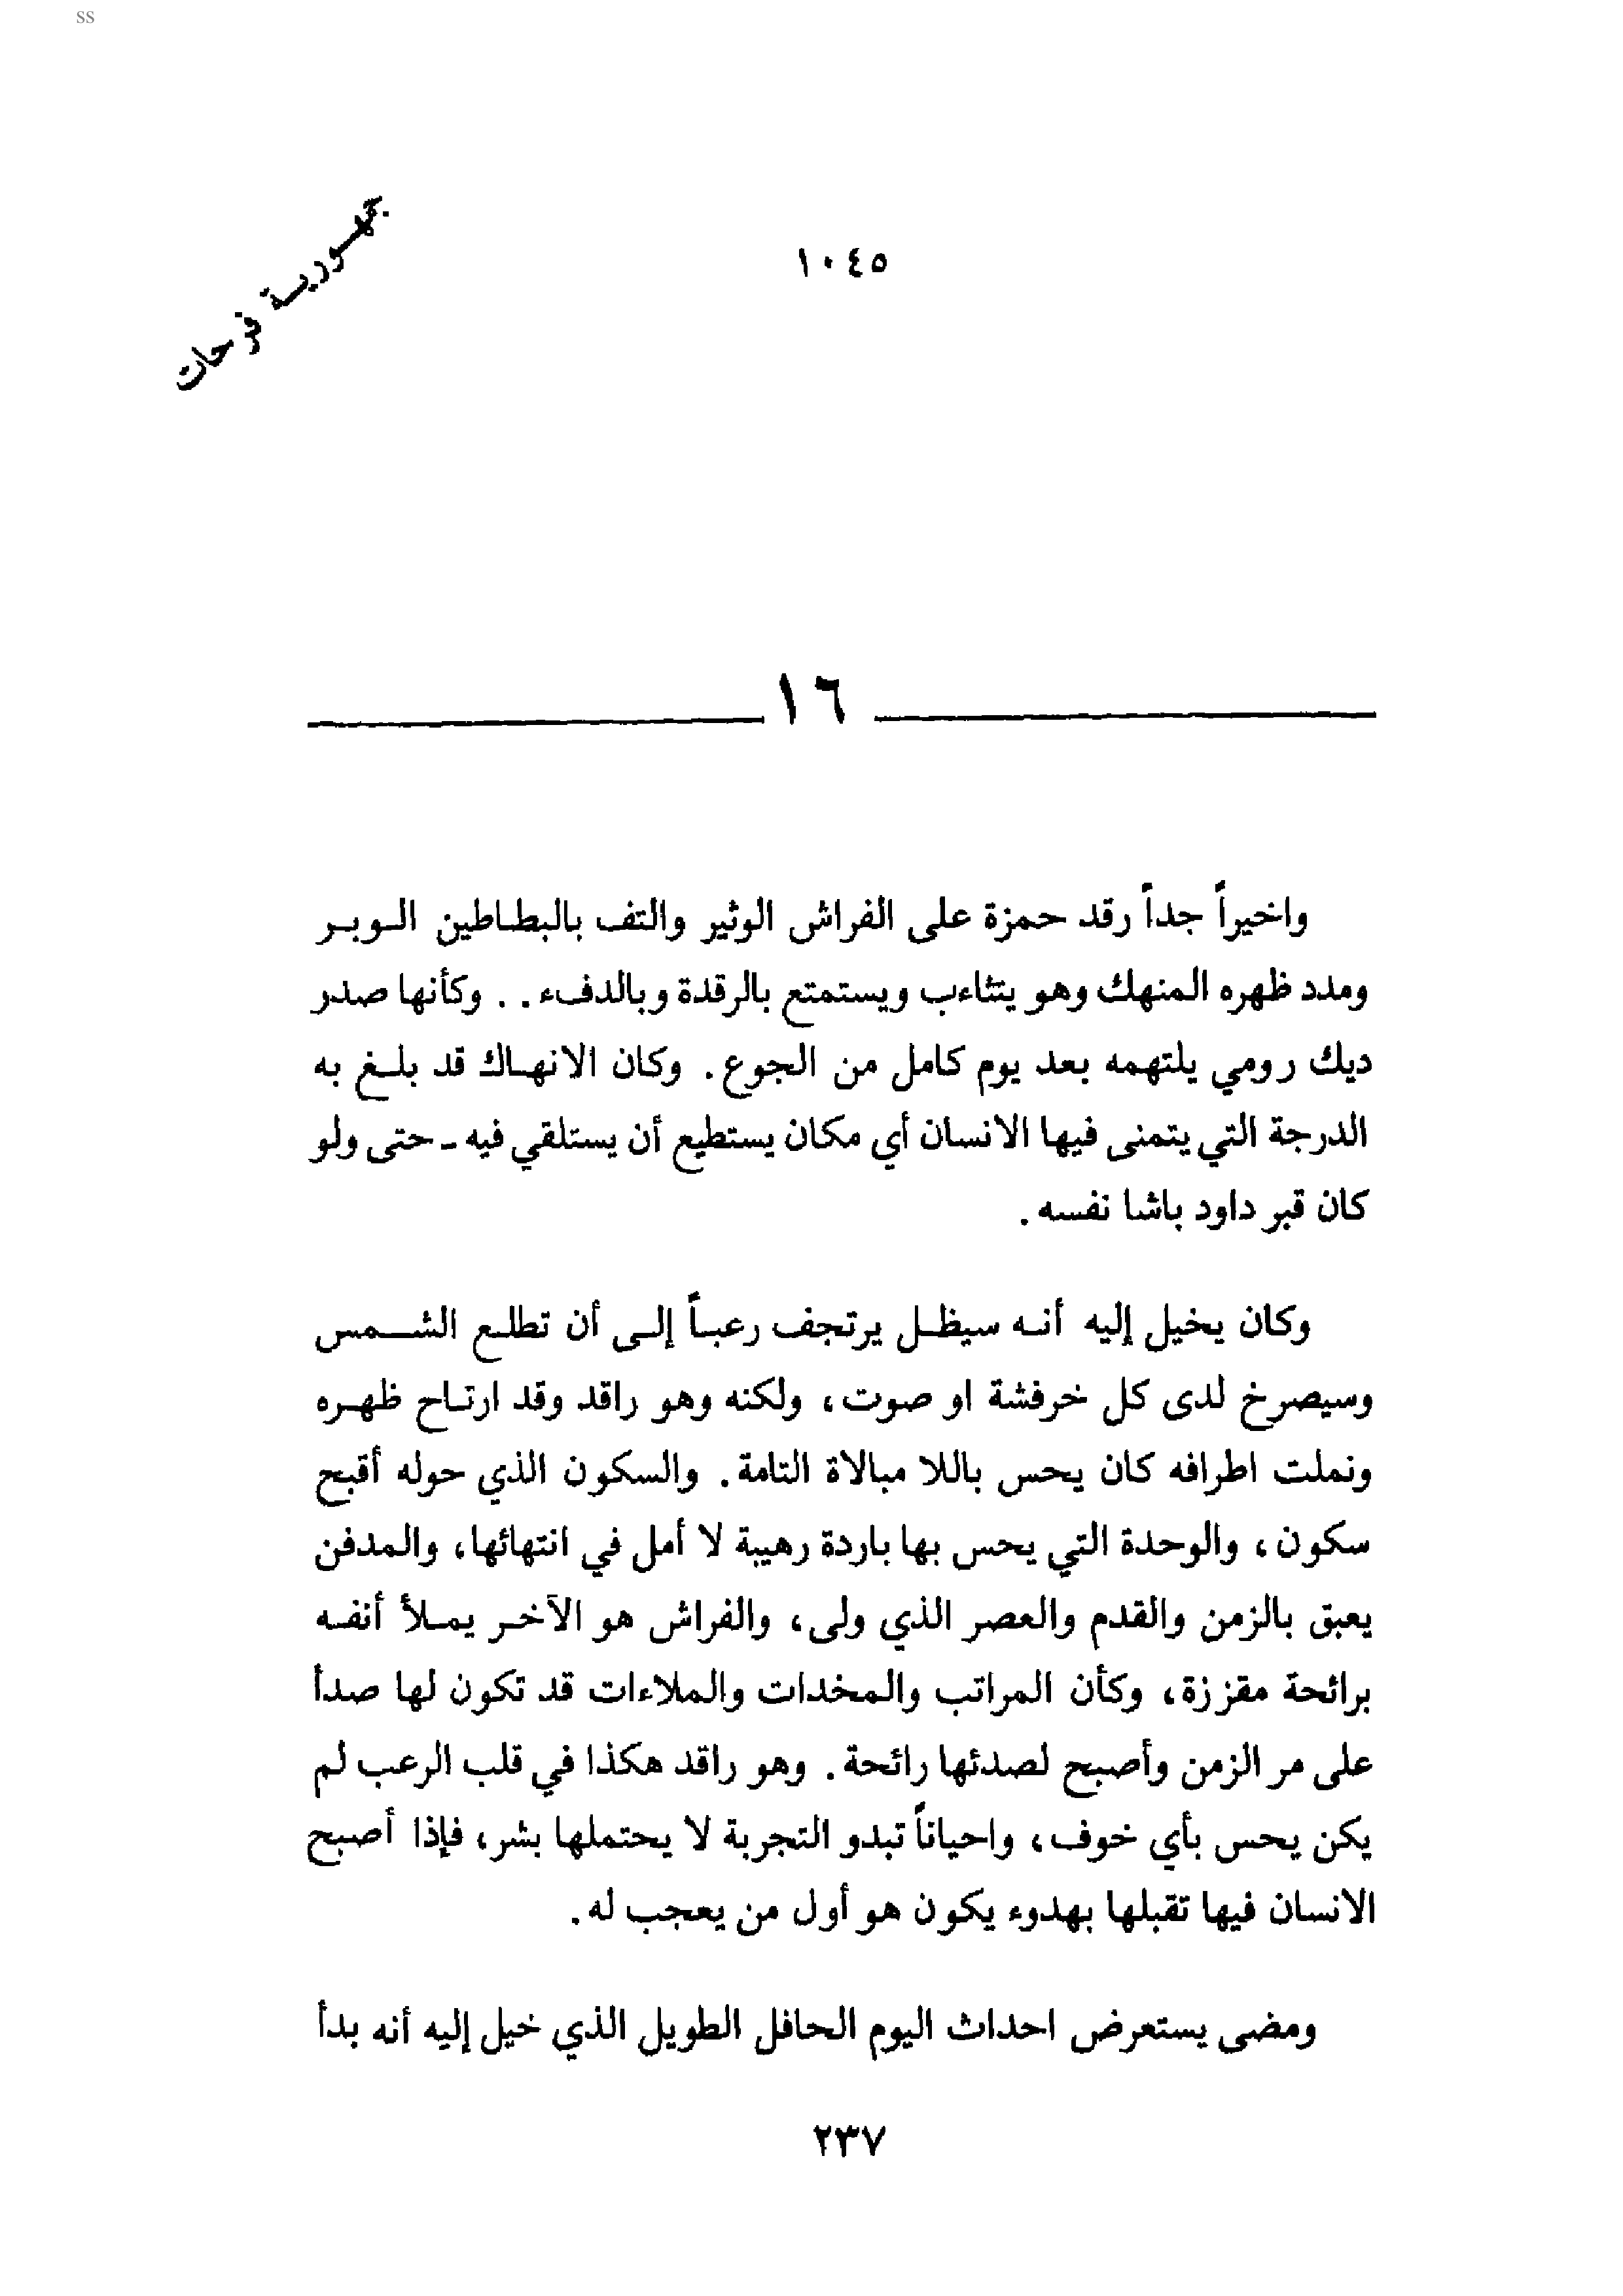 ss
١٠٤٥
جمهورية فرحات
١٦
واخيراً جداً رقد حمزة على الفراش الوثير والتف بالبطاطين الوبر
ومدد ظهره المنهك وهو يتثاءب ويستمتع بالرقدة وبالدفء . . وكأنها صدر
ديك رومي يلتهمه بعد يوم كامل من الجوع . وكان الانهاك قد بلغ به
الدرجة التي يتمنى فيها الانسان أي مكان يستطيع أن يستلقي فيه ـ حتى ولو
كان قبر داود باشا نفسه .
وكان يخيل إليه أنه سيظل يرتجف رعباً إلى أن تطلع الشمس
وسيصرخ لدى كل خرفشة او صوت ، ولكنه وهو راقد وقد ارتاح ظهره
ونملت اطرافه كان يحس باللا مبالاة التامة . والسكون الذي حوله أقبح
سكون ، والوحدة التي يحس بها باردة رهيبة لا أمل في انتهائها ، والمدفن
يعبق بالزمن والقدم والعصر الذي ولى ، والفراش هو الآخر يملأ أنفه
برائحة مقززة ، وكأن المراتب والمخدات والملاءات قد تكون لها صدأ
على مر الزمن وأصبح لصدئها رائحة . وهو راقد هكذا في قلب الرعب لم
يكن يحس بأي خوف ، واحياناً تبدو التجربة لا يحتملها بشر ، فإذا أصبح
الانسان فيها تقبلها بهدوء يكون هو أول من يعجب له .
ومضى يستعرض احداث اليوم الحافل الطويل الذي خيل إليه أنه بدأ
٢٣٧